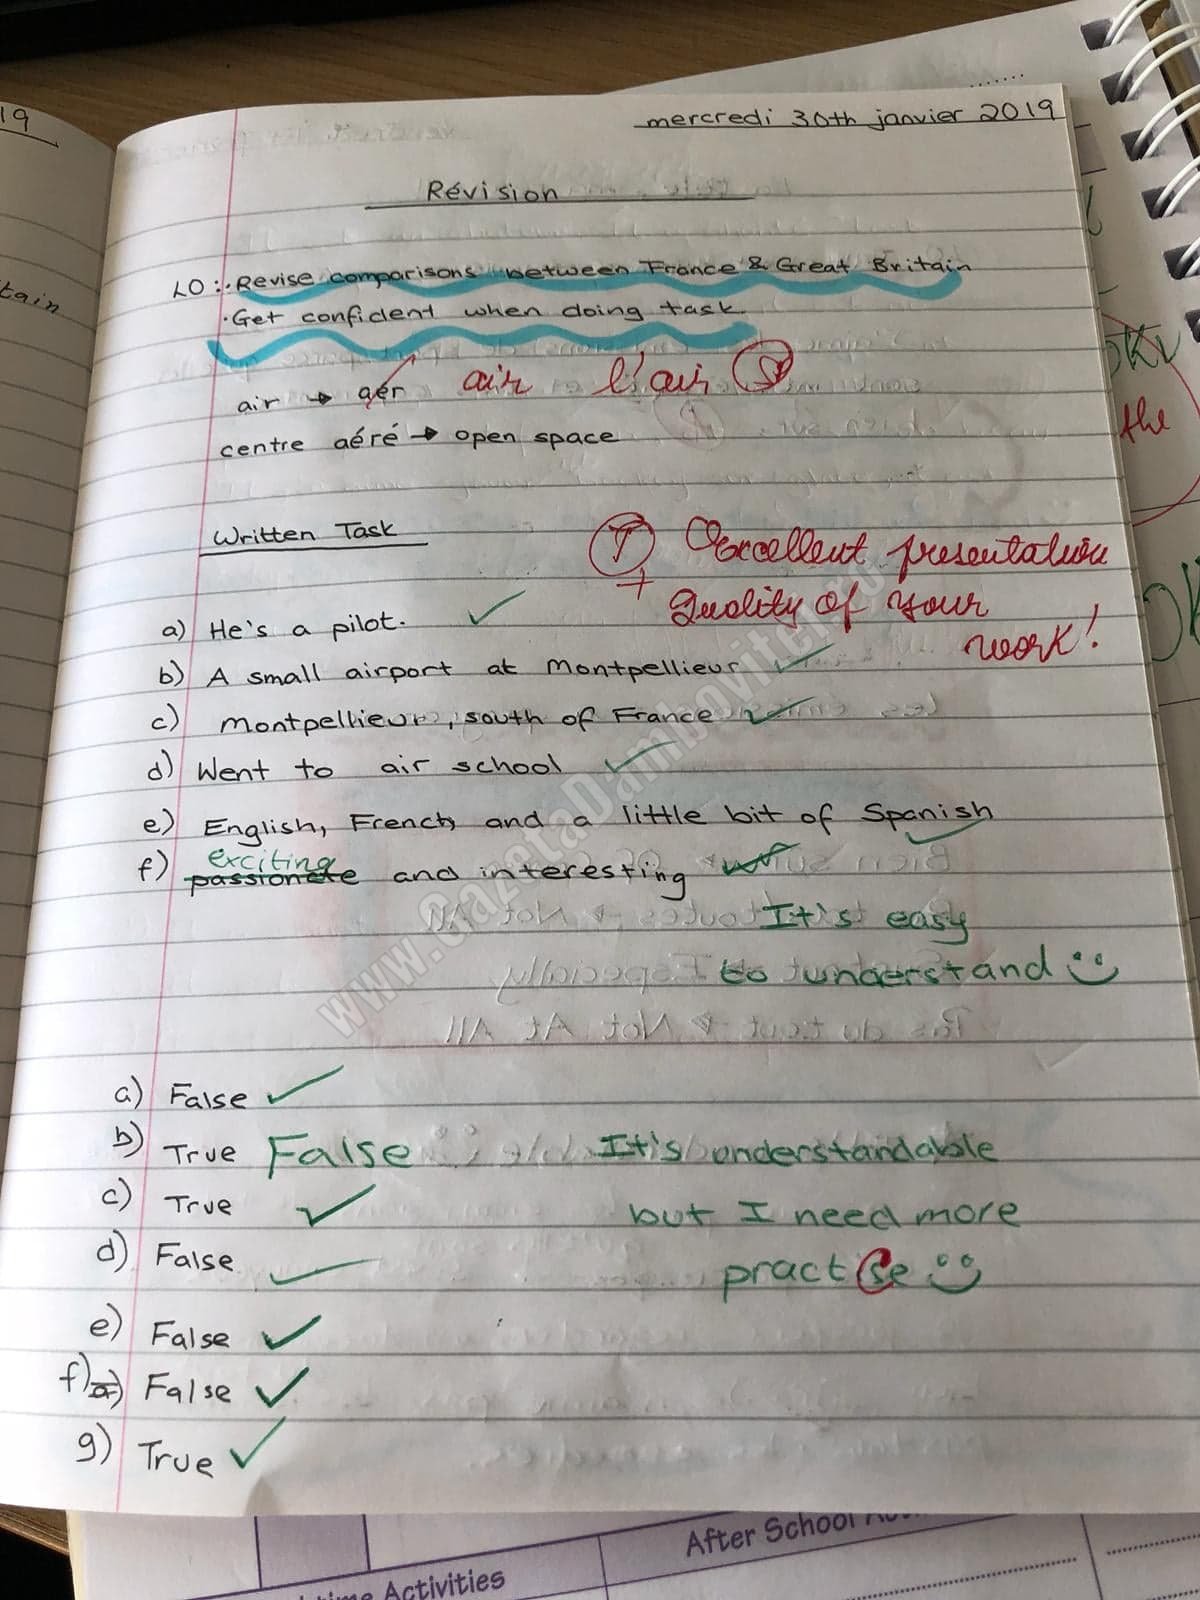 19
mercredi 30th janvier 2019
Révision
LO: · Revise comparisons between France & Great Britain
tain
· Get confident when doing task.
air → aér air l'air
centre aéré → open space
the
Written Task
T Excellent presentation
+ Quality of your
work!
a) He's a pilot.
b) A small airport at Montpellieur
c) Montpellieur, south of France
d) Went to air school
e) English, French, and a little bit of Spanish
exciting
f) passionate and interesting
It's easy
to understand
a) False
b) True False It's understandable
c) True but I need more
d) False practise
e) False
f) False
g) True
After School
Activities
www.GazetaDambovitei.ro